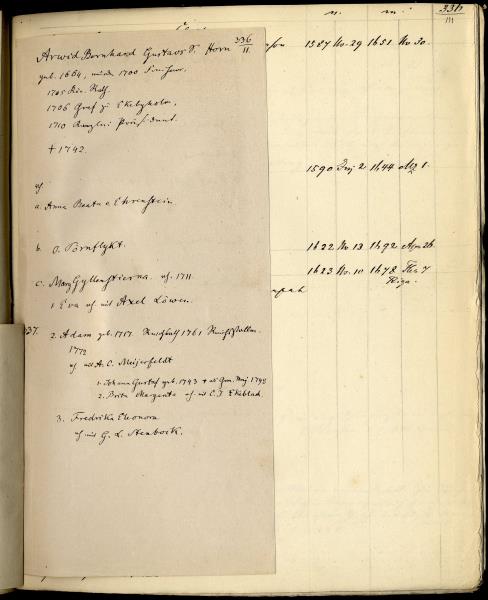 336
II.
Arwid Bernhard Gustavs S. Horn
geb. 1664, wurde 1700 Freiherr,
1705 Kön. Rath.
1706 Graf zu Ekebyholm,
1710 Kanzlei Präsident.
† 1742.
a. Anna Beata v. Ehrenstein
b. O. Törnflykt.
c. Marg Gyllenstierna. vh. 1711.
1 Eva vh mit Axel Löwen.
37.
2. Adam geb. 1717. Reichsrath 1761
1772
vh mit A. C. Meijerfeldt
1. Johann Gustaf geb. 1743 + als Gen. Maj 1798
2. Brita Margareta vh. mit C. J. Ekeblad.
3. Fredrika Eleonora
vh mit G. L. Stenbock.
336
III
1587 No. 29 1651. No 30.
1590 2 1644 Mz 1.
1622 No 13 1692 Apr 26
1623 No. 10 1678 7
Riga.